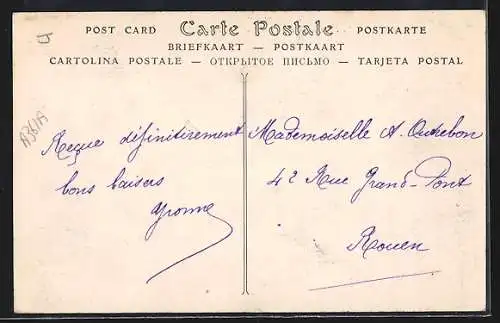 POST CARD Carte Postale POSTKARTE
BRIEFKAART — POSTKAART
CARTOLINA POSTALE — ОТКРЫТОЕ ПИСЬМО — TARJETA POSTAL
Reçue définitivement
bons baisers
Yvonne
Mademoiselle A. Outrebon
42 Rue Grand-Pont
Rouen